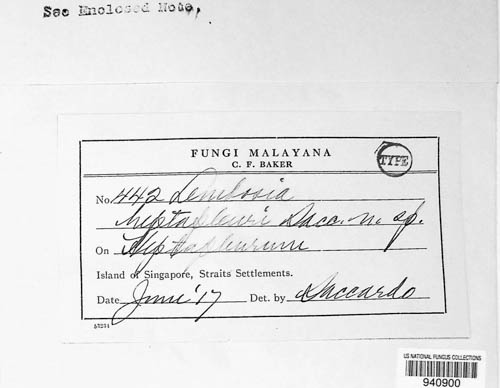 See Enclosed Note,
FUNGI MALAYANA
C. F. BAKER
TYPE
No. 442 Lembosia
Heptapleuri Sacc. n. sp.
On Heptapleurum
Island of Singapore, Straits Settlements.
Date June '17 Det. by Saccardo
US NATIONAL FUNGUS COLLECTIONS
940900